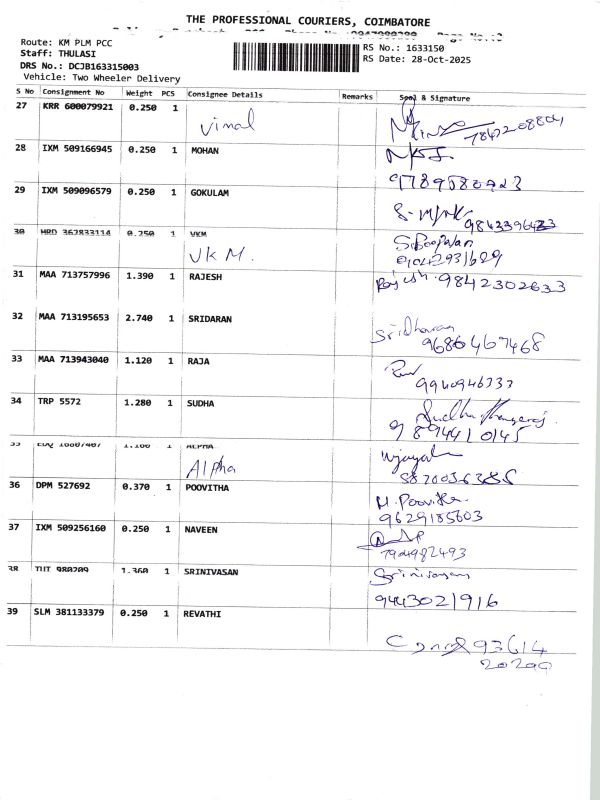 THE PROFESSIONAL COURIERS, COIMBATORE
Route: KM PLM PCC
Staff: THULASI
DRS No.: DCJB163315003
Vehicle: Two Wheeler Delivery
RS No.: 1633150
RS Date: 28-Oct-2025
S No Consignment No Weight PCS Consignee Details Remarks Seal & Signature
27 KRR 600079921 0.250 1
Vimal
28 IXM 509166945 0.250 1 MOHAN
29 IXM 509096579 0.250 1 GOKULAM
30 0.250 1 VKM
VKM.
31 MAA 713757996 1.390 1 RAJESH Rajesh 9842302633
32 MAA 713195653 2.740 1 SRIDARAN
Sridharan
9686467468
33 MAA 713943040 1.120 1 RAJA
9940946333
34 TRP 5572 1.280 1 SUDHA
9894410145
35 1 ALPHA
Alpha
36 DPM 527692 0.370 1 POOVITHA
M. Poovitha
9629185603
37 IXM 509256160 0.250 1 NAVEEN
7904982493
38 1.360 1 SRINIVASAN Srinivasan
9443021916
39 SLM 381133379 0.250 1 REVATHI
93614
20299